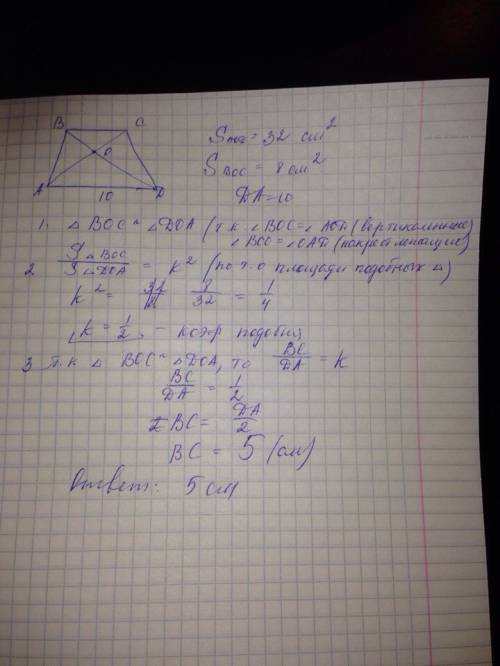 B C
O
A D
10
S AOD = 32 см²
S BOC = 8 см²
DA = 10
1. △ BOC ~ △DOA (т.к ∠BOC = ∠AOD (вертикальные)
∠BCO = ∠OAD (накрест лежащие)
2 S△BOC / S△DOA = k² (по т-о площади подобных △)
k² = 8/32 = 1/4
k = 1/2 - коэф подобия
3 т.к △ BOC ~ △DOA, то BC/DA = k
BC/DA = 1/2
BC = DA/2
BC = 5 (см)
Ответ: 5 см